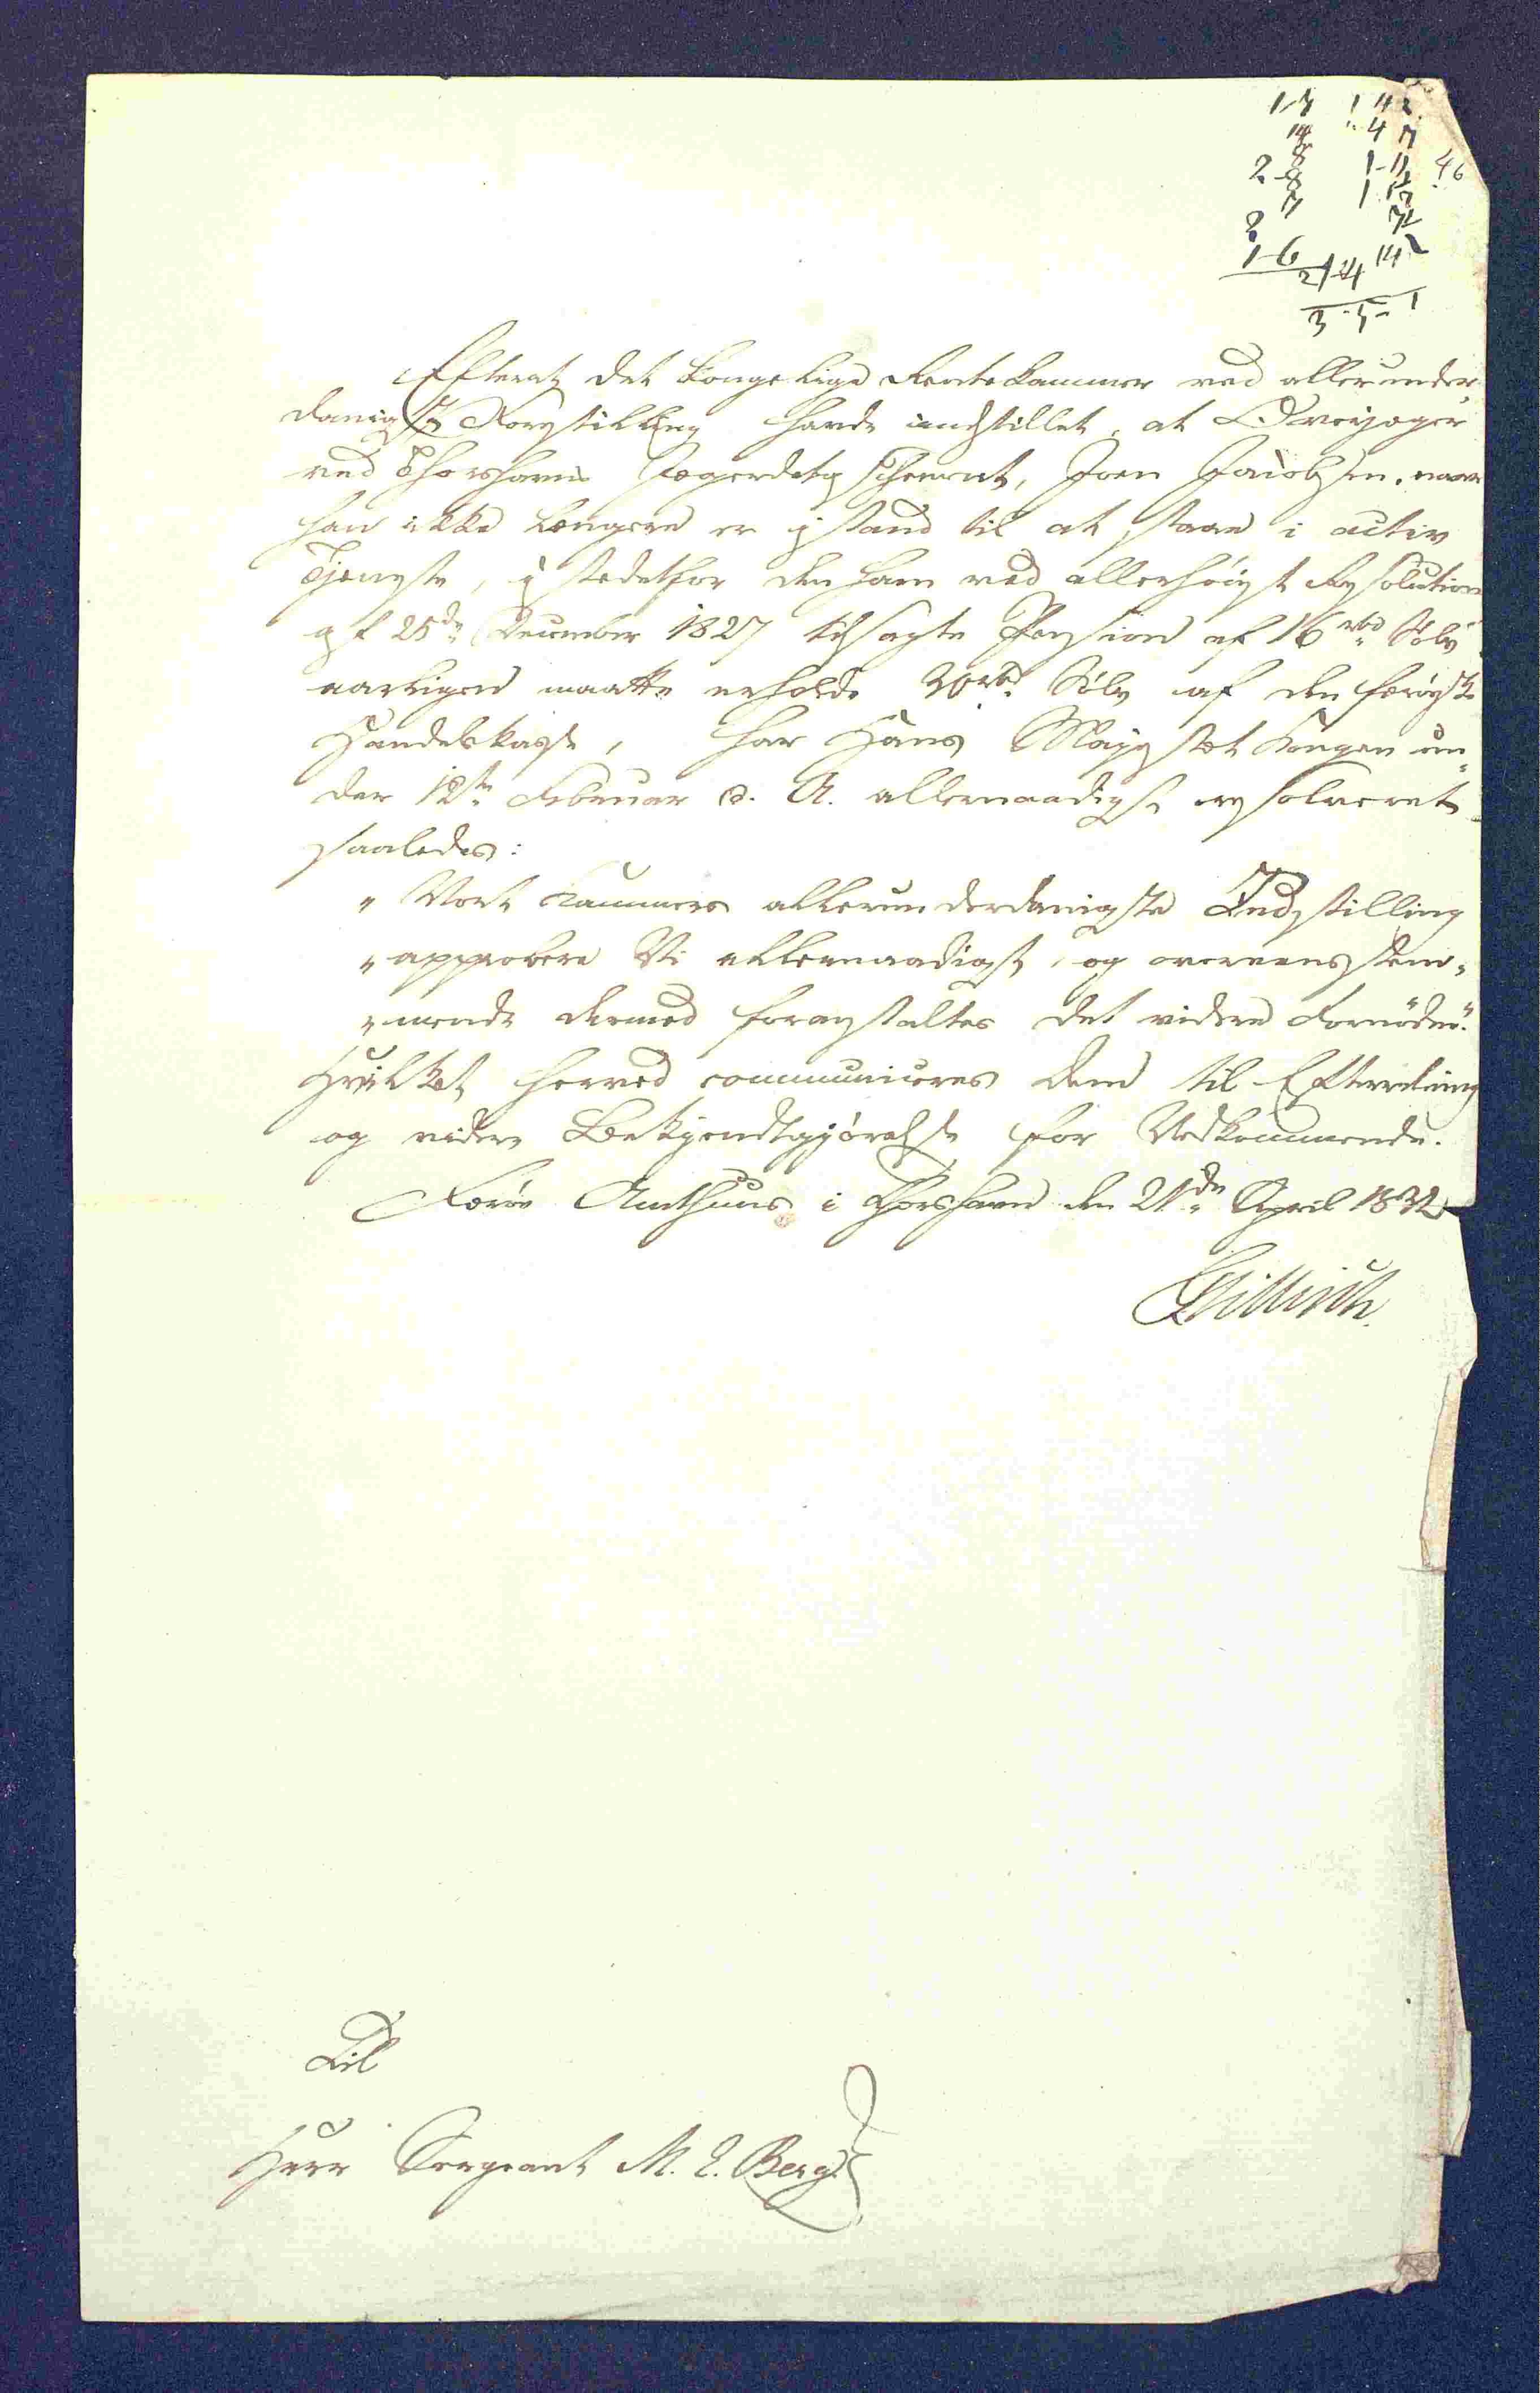 17 1 42
14 " 4 7
2-8 1-11 46
8 1 12
7
2
16 14
3-5-1
Efterat det kongelige Rentekammer ved allerunder
danigst Forestilling havde indstillet, at Overjæger
ved Thorshavns Jægerdetaschement, Joen Jacobsen, naar
han ikke længere er istand til at staae i activ
Tjeneste, istedetfor den ham ved allerhøiest Resolution
af 25de December 1827 tilsagte Pension af 16 rbd Sølv
aarligen maatte erholde 30 rbd Sølv af den færøiske
Handelskasse, har Hans Majestæt Kongen un„
der 12te Februar d. A. allernaadigst resolveret
saaledes:
„ Vort Kammers allerunderdanigste Indstilling
„ approbere Vi allernaadigst, og overeensstem„
„ mende dermed foranstaltes det videre Fornødne."
Hvilket herved communiceres Dem til Efterretning
og videre Bekjendtgjørelse for Vedkommende.
Færøe Amthuus i Thorshavn den 21de April 1832
Tillisch
Til
Herr Sergeant M. E. Berg.